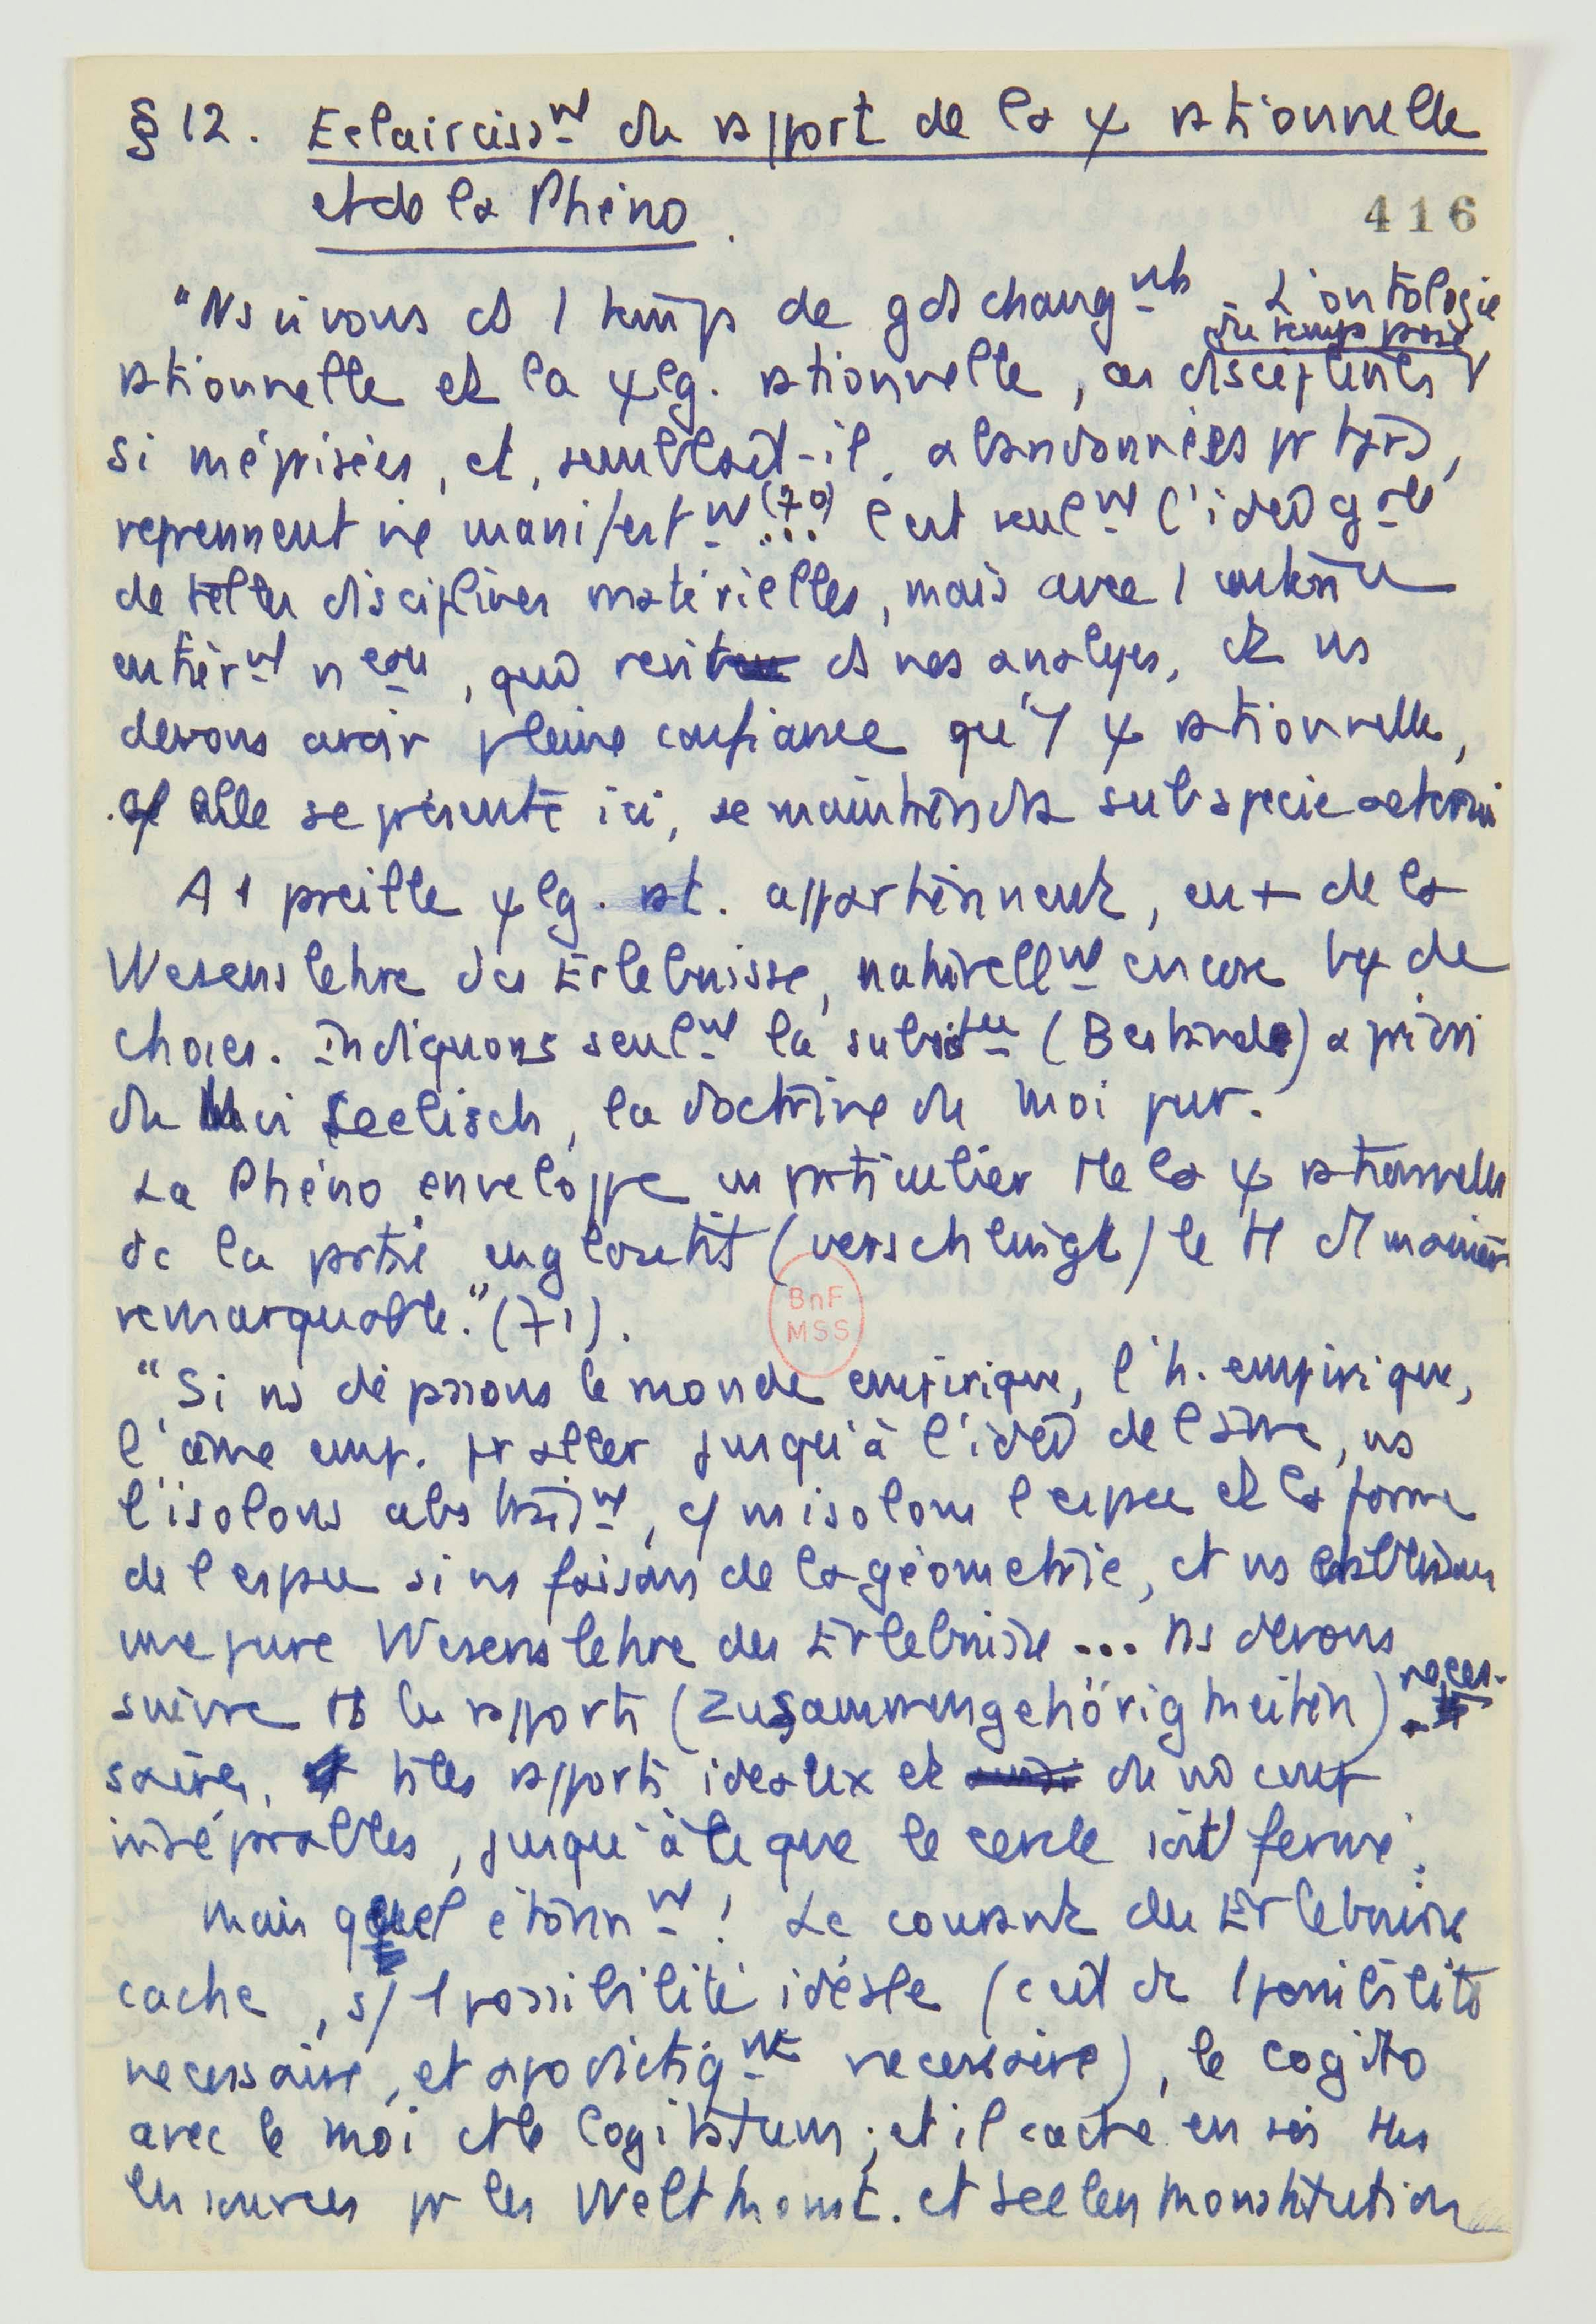 § 12. Eclairciss^mt du rapport de la ψ rationnelle
et de la Phéno.
416
"Ns vivons ds 1 temps de gds chang^mts. L'ontologie
du temps passé
rationnelle et la ψlg. rationnelle, ces disciplines
si méprisées, et, semblait-il, abandonnées pr tjrs,
reprennent vie manifest^mt (70)... C'est seul^mt l'idée g^ale
de telles disciplines matérielles, mais avec 1 contenu
entièr^mt n^eau, qui revit ds nos analyses, et ns
devons avoir pleine confiance qu'1 ψ rationnelle,
cf elle se présente ici, se maintiendra sub specie aeterni
A 1 pareille ψlg. rat. appartiennent, en + de la
Wesenslehre des Erlebnisse, naturell^mt encore bcp de
choses. Indiquons seul^mt la subst^ce (Bestande) a priori
du Moi seelisch, la doctrine du moi pur.
La Phéno enveloppe en particulier tte la ψ rationnelle
de la partie engloutit (verschlingt) le tt d'1 manière
remarquable." (71).
BnF
MSS
"Si ns dépassons le monde empirique, l'h. empirique,
l'âme emp. pr aller jusqu'à l'idée de l'âme, ns
l'isolons abstrait^mt, cf ns isolons l'espace et la forme
de l'espace si ns faisons de la géométrie, et ns établissons
une pure Wesenslehre des Erlebnisse... Ns devons
suivre ts les rapports (Zusammengehörigkeiten) néces-
saires, ts les rapports idéaux et du nô coup
inséparables, jusqu'à ce que le cercle soit fermé.
Mais quel étonn^mt! Le courant des Erlebnisse
cache, s/ 1 possibilité idéale (c'est dr 1 possibilité
nécessaire, et apodictiq^mt nécessaire), le cogito
avec le moi et le cogitatum; et il cache en soi ttes
les sources pr les Weltkonst. et Seelenkonstitution